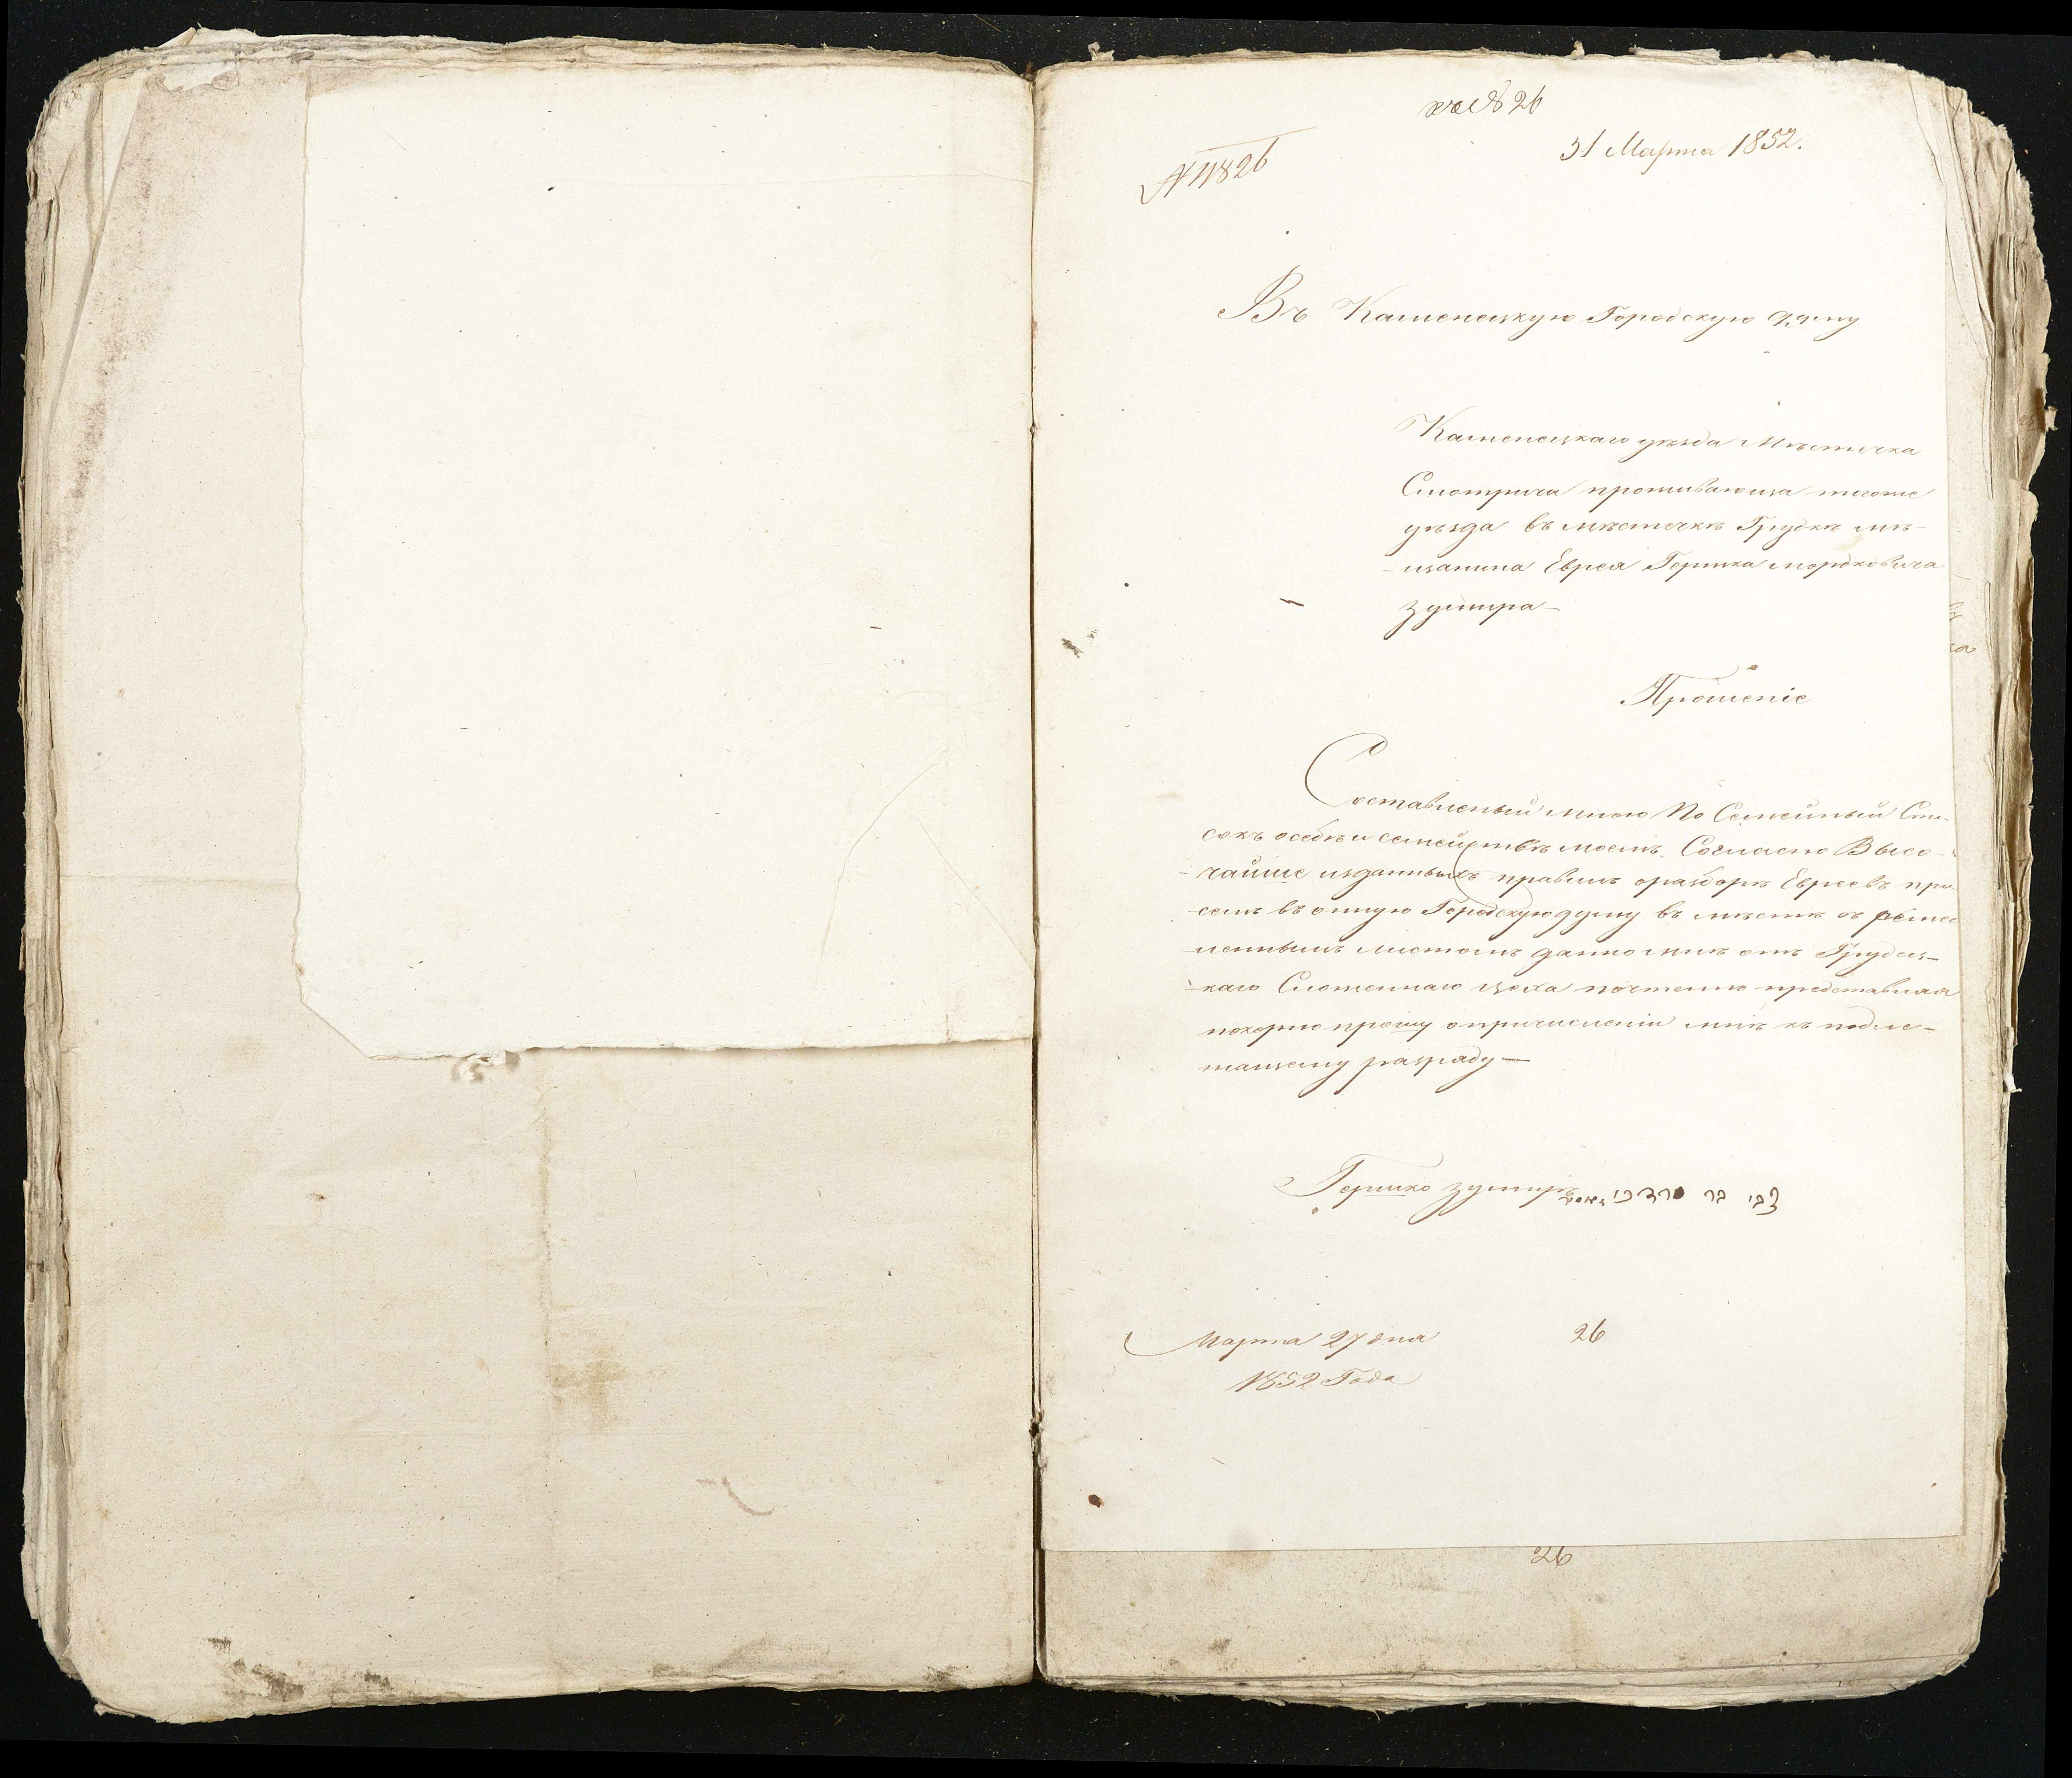 № 26
31 Марта 1852.
№ 11826
Въ Каменецкую Городскую Думу
Каменецкаго уѣзда Мѣстечка
Смотрича проживающа тогоже
уѣзда въ мѣстечкѣ Грудкѣ мѣ-
-щанина Еврея Гершка мордковича
зумира
Прошеніе
Составленый мною По Семейный Спи-
сокъ осебѣ и семействѣ моемъ. Согласно Высо-
-чайше изданныхъ правилъ оразборѣ Евреевъ при
семъ въ онную Городскую думу въ мѣстѣ съ ремес
леннымъ листомъ данно мнѣ отъ Грудец-
-каго Сложеннаго цеха почтенно представляя
покорно прошу опричисленіи мнѣ къ подле-
жащему разряду —
Гершко зумиръ צבי בר מרדכי
Марта 27 дня 26
1852 Года
26